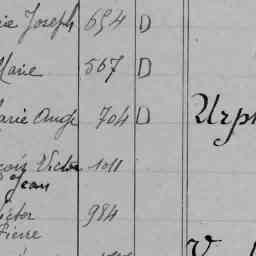 ie Joseph 694 D
Marie 567 D
arie Ange 704 D Urp
çois Victor 1011
Jean
ictor 984
Pierre